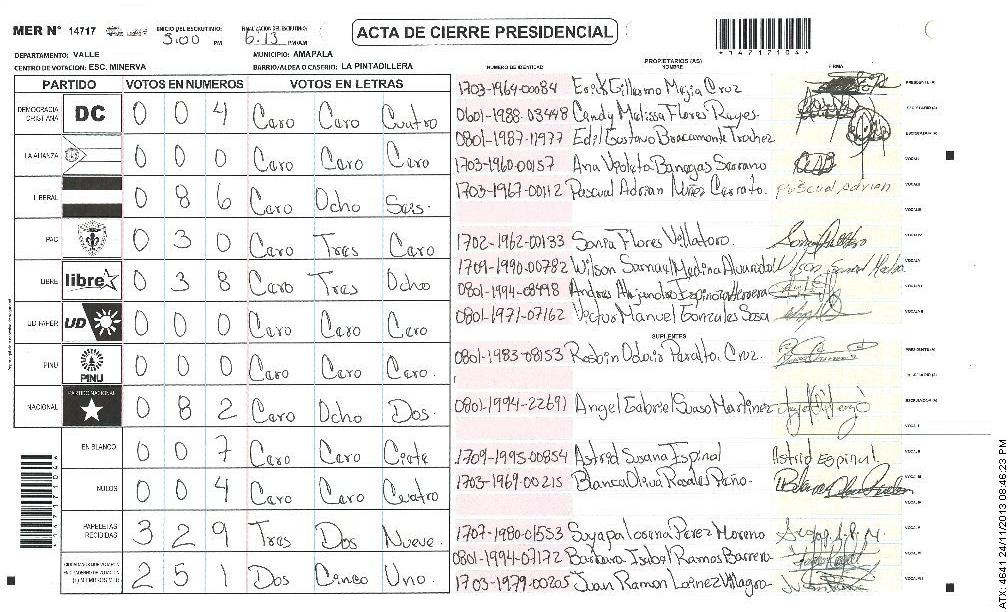 MER N° 14717 INICIO DEL ESCRUTINIO: 3:00 PM FINALIZACION DEL ESCRUTINIO: 6:13 PM/AM ACTA DE CIERRE PRESIDENCIAL
1 4 7 1 7 1 0 4
DEPARTAMENTO: VALLE MUNICIPIO: AMAPALA
CENTRO DE VOTACION: ESC. MINERVA BARRIO/ALDEA O CASERIO: LA PINTADILLERA
PARTIDO VOTOS EN NUMEROS VOTOS EN LETRAS
DEMOCRACIA CRISTIANA DC 0 0 4 Cero Cero Cuatro
LA ALIANZA 0 0 0 Cero Cero Cero
LIBERAL 0 8 6 Cero Ocho Seis.
PAC 0 3 0 Cero Tres Cero
LIBRE libre 0 3 8 Cero Tres Ocho
UD FAPER UD 0 0 0 Cero Cero Cero
PINU PINU 0 0 0 Cero Cero Cero.
NACIONAL PARTIDO NACIONAL 0 8 2 Cero Ocho Dos.
EN BLANCO 0 0 7 Cero Cero Ciete
NULOS 0 0 4 Cero Cero Cuatro
PAPELETAS RECIBIDAS 3 2 9 Tres Dos Nueve.
2 5 1 Dos Cinco Uno.
NUMERO DE IDENTIDAD PROPIETARIOS (AS) NOMBRE FIRMA
1703-1964-00084 Erick Gillermo Mejia Cruz PRESIDENTE (A)
0601-1988-03448 Candy Melissa Flores Reyes SECRETARIO (A)
0801-1987-11977 Edil Gustavo Bracamonte Trochez ESCRUTADOR (A)
1703-1960-00157 Ana Violeta Banegas Serrano VOCAL I
1703-1967-00112 Pascual Adrian Nuñez Cerrato. Pascual Adrian VOCAL II
VOCAL III
1702-1962-00133 Sonia Flores Villatoro. VOCAL IV
1709-1990-00782 Wilson Samuel Medina Alvarado VOCAL V
0801-1994-08998 Andres Alejandro Espinoza Herrera VOCAL VI
0801-1971-07162 Victor Manuel Gonzales Sosa VOCAL VII
SUPLENTES
0801-1983-08153 Robin Odwir Peralta Cruz. PRESIDENTE (A)
SECRETARIO (A)
0801-1994-22691 Angel Gabriel Suaso Martinez ESCRUTADOR (A)
VOCAL I
1709-1995-00854 Astrid Susana Espinal Astrid Espinal. VOCAL II
1703-1969-00215 Blanca Oliva Rosales Peña. VOCAL III
1707-1980-01553 Suyapa Lorena Perez Moreno
0801-1994-07172 Barbara Isabel Ramos Barrero
1703-1979-00205 Juan Ramon Lainez Villagra VOCAL VII
ATX: 4641 24/11/2013 08:46:23 PM